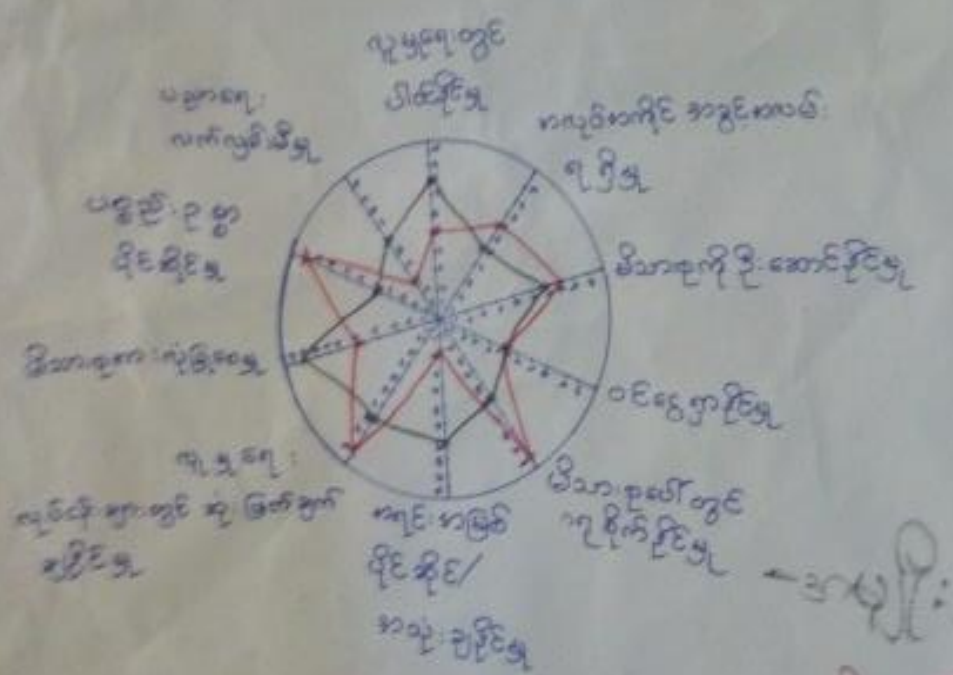 လူမှုရေးတွင်
ပါဝင်နိုင်မှု
အလုပ်အကိုင် အခွင့်အလမ်း
ရရှိမှု
မိသားစုကို ဦးဆောင်နိုင်မှု
ဝင်ငွေရှာနိုင်မှု
မိသားစုပေါ်တွင်
ဂရုစိုက်နိုင်မှု
အရင်းအမြစ်
ပိုင်ဆိုင်/
အသုံးချနိုင်မှု
လူမှုရေး
လုပ်ငန်းများတွင် ဆုံးဖြတ်ချက်
ချနိုင်မှု
မိသားစုအား လုံခြုံစေမှု
ပစ္စည်းဥစ္စာ
ပိုင်ဆိုင်မှု
ပညာရေး
လက်လှမ်းမီမှု
အမျိုး